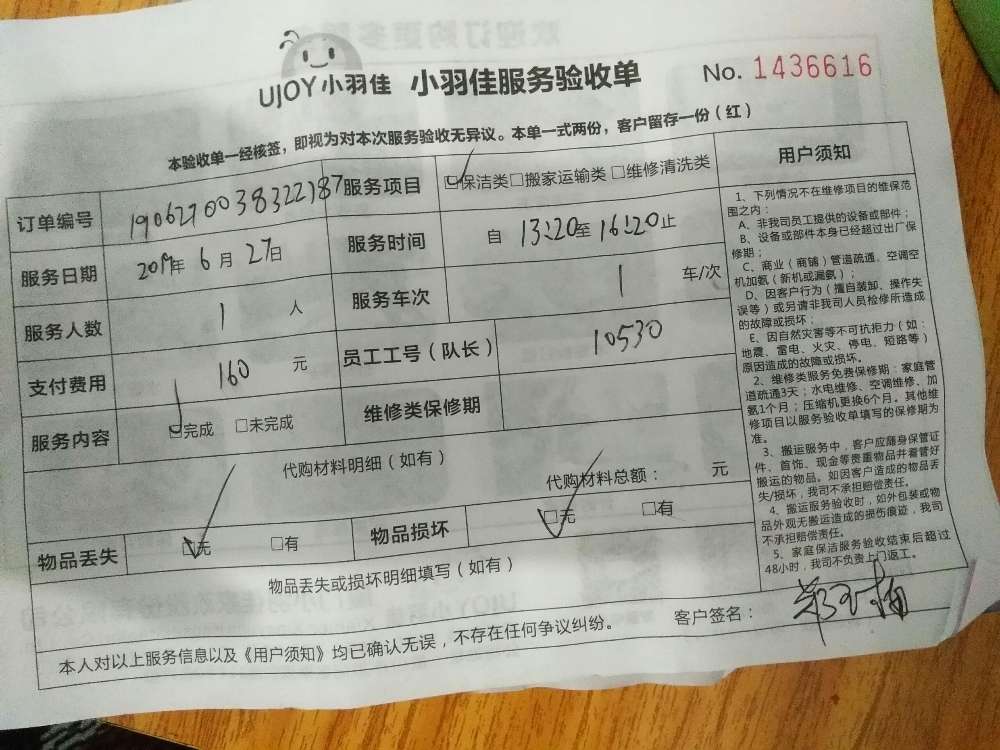 UJOY 小羽佳 小羽佳服务验收单 No. 1436616
本验收单一经核签，即视为对本次服务验收无异议。本单一式两份，客户留存一份（红）
订单编号 1906270038322387 服务项目 ☑保洁类□搬家运输类□维修清洗类
服务日期 2019年 6 月 27日 服务时间 自 13:20至 16:20止
服务人数 1 人 服务车次 1 车/次
支付费用 160 元 员工工号（队长） 10530
服务内容 ☑完成 □未完成 维修类保修期
代购材料明细（如有）
代购材料总额： 元
物品丢失 ☑无 □有 物品损坏 ☑无 □有
物品丢失或损坏明细填写（如有）
本人对以上服务信息以及《用户须知》均已确认无误，不存在任何争议纠纷。 客户签名：
用户须知
1、下列情况不在维修项目的维保范
围之内：
A、非我司员工提供的设备或部件；
B、设备或部件本身已经超过出厂保
修期；
C、商业（商铺）管道疏通、空调空
机加氨（新机或漏氨）；
D、因客户行为（擅自装卸、操作失
误等）或另请非我司人员检修所造成
的故障或损坏；
E、因自然灾害等不可抗拒力（如：
地震、雷电、火灾、停电、短路等）
原因造成的故障或损坏。
2、维修类服务免费保修期：家庭管
道疏通3天；水电维修、空调维修、加
氨1个月；压缩机更换6个月。其他维
修项目以服务验收单填写的保修期为
准。
3、搬运服务中，客户应随身保管证
件、首饰、现金等贵重物品并看管好
搬运的物品。如因客户造成的物品丢
失/损坏，我司不承担赔偿责任。
4、搬运服务验收时，如外包装或物
品外观无搬运造成的损伤痕迹，我司
不承担赔偿责任。
5、家庭保洁服务验收结束后超过
48小时，我司不负责上门返工。